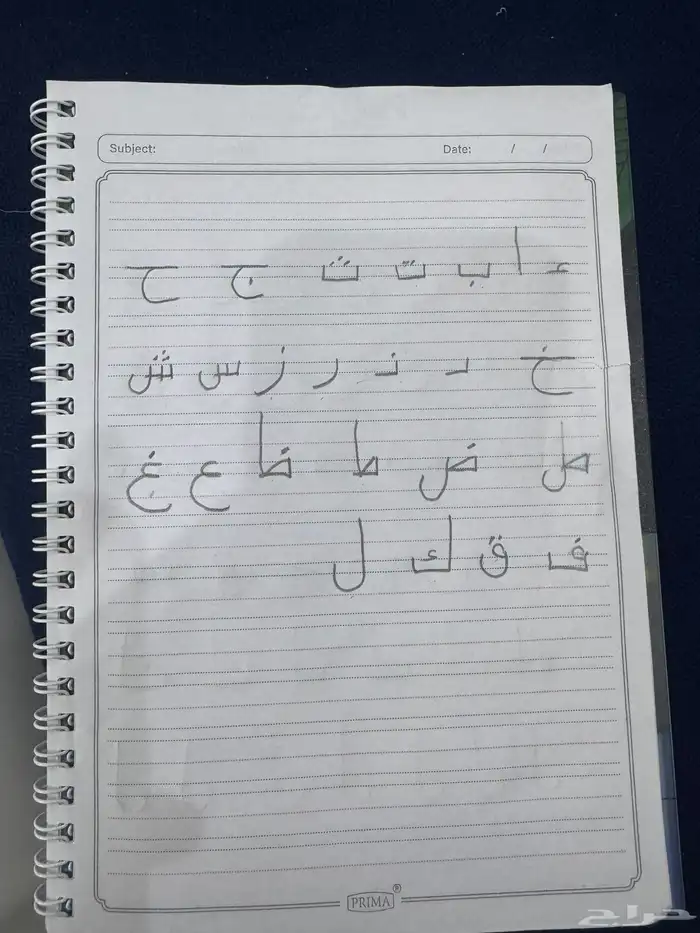 Subject: Date: / /
ء ا ب ت ث ج ح
خ د ذ ر ز س ش
ص ض ط ظ ع غ
ف ق ك ل
PRIMA®
حراج